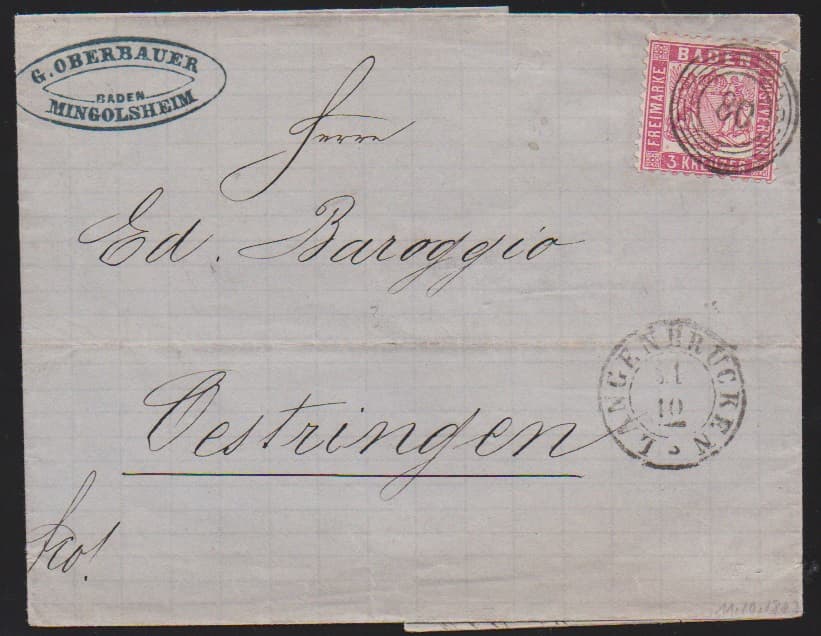 G. OBERBAUER
BADEN
MINGOLSHEIM
BADEN
FREIMARKE
POSTVEREIN
3 KREUZER
80
Herrn
Ed. Baroggio
LANGENBRÜCKEN
10
Oestringen
fco!